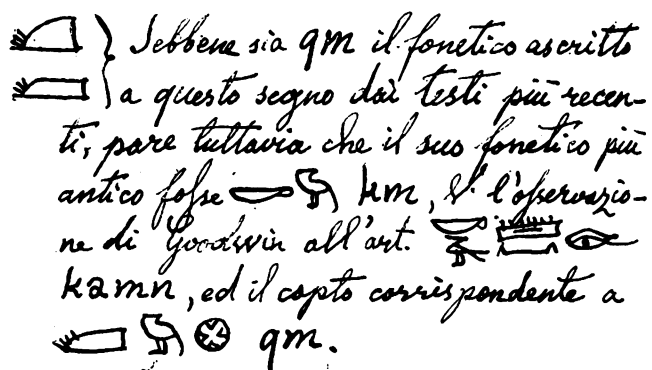 𓆎 } Sebbene sia qm il fonetico ascritto
a questo segno dai testi più recen-
ti, pare tuttavia che il suo fonetico più
antico fosse 𓎡𓅓 km, V. l'osservazio-
ne di Goodwin all'art.
kamn, ed il copto corrispondente a
𓆎𓅓𓊖 qm.